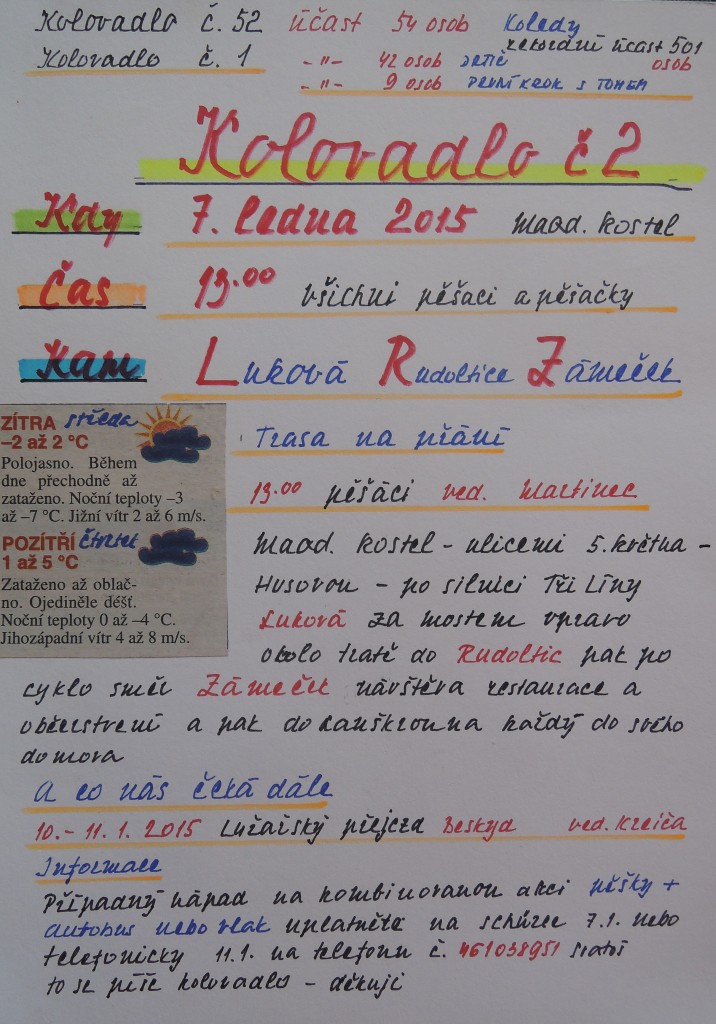 Kolovadlo č. 52 účast 54 osob Koledy
rekordní účast 501
Kolovadlo č. 1 -"- 42 osob osob
-"- 9 osob PRVNÍ KROK S TOMEM
Kolovadlo č 2
Kdy 7. ledna 2015 Maad. kostel
Čas 13.00 všichni pěšaci a pěšačky
Kam Luková Rudoltice Zámeček
ZÍTRA středa
–2 až 2 °C
Polojasno. Během
dne přechodně až
zataženo. Noční teploty –3
až –7 °C. Jižní vítr 2 až 6 m/s.
POZÍTŘÍ čtvrtek
1 až 5 °C
Zataženo až oblač-
no. Ojediněle déšť.
Noční teploty 0 až –4 °C.
Jihozápadní vítr 4 až 8 m/s.
Trasa na přání
13.00 pěšáci ved. Martinec
Maad. kostel - ulicemi 5. května -
Husovou - po silnici Tři Líny
Luková za mostem vpravo
okolo tratě do Rudoltic pak po
cyklo směr Zámeček návštěva restaurace a
občerstvení a pak do Lanškrouna každý do svého
domova
A co nás čeká dále
10.- 11. 1. 2015 Lyžařský přejezd Beskyd ved. Krejča
Informace
Případný nápad na kombinovanou akci pěšky +
autobus nebo vlak uplatněte na schůzce 7.1. nebo
telefonicky 11.1. na telefonu č. 461038951
to se píše kolovadlo - děkuji